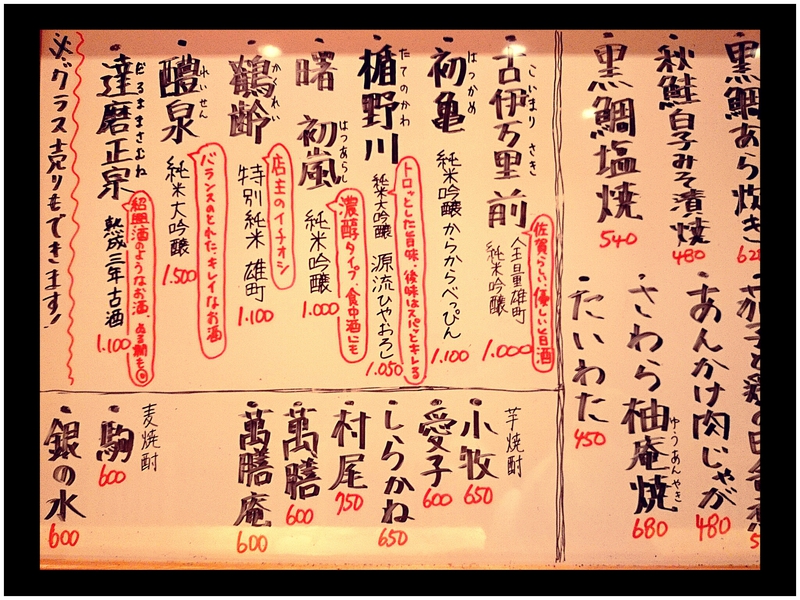 黒鯛あら炊き
秋鮭白子みそ漬焼
480
黒鯛塩焼
540
あんかけ肉じゃが
480
さわら柚庵焼
ゆうあんやき
680
たいわた
450
古伊万里 前
こいまり さき
全量雄町
純米吟醸
1.000
佐賀らしい、優しい旨酒
初亀
はつかめ
純米吟醸 からからべっぴん
1.100
楯野川
たてのかわ
純米大吟醸 源流ひやおろし
1.050
トロッとした旨味、後味はスパッとキレる
曙 初嵐
はつあらし
純米吟醸
1.000
濃醇タイプ、食中酒にも
鶴齢
かくれい
特別純米 雄町
1.100
店主のイチオシ
醴泉
れいせん
純米大吟醸
1.500
バランスのとれた、キレイなお酒
達磨正泉
だるままさむね
熟成三年古酒
1.100
紹興酒のようなお酒、ぬる燗も◎
※グラス売りもできます!
芋焼酎
小牧
650
愛子
600
しらかね
650
村尾
750
萬膳
600
萬膳庵
600
麦焼酎
駒
600
銀の水
600